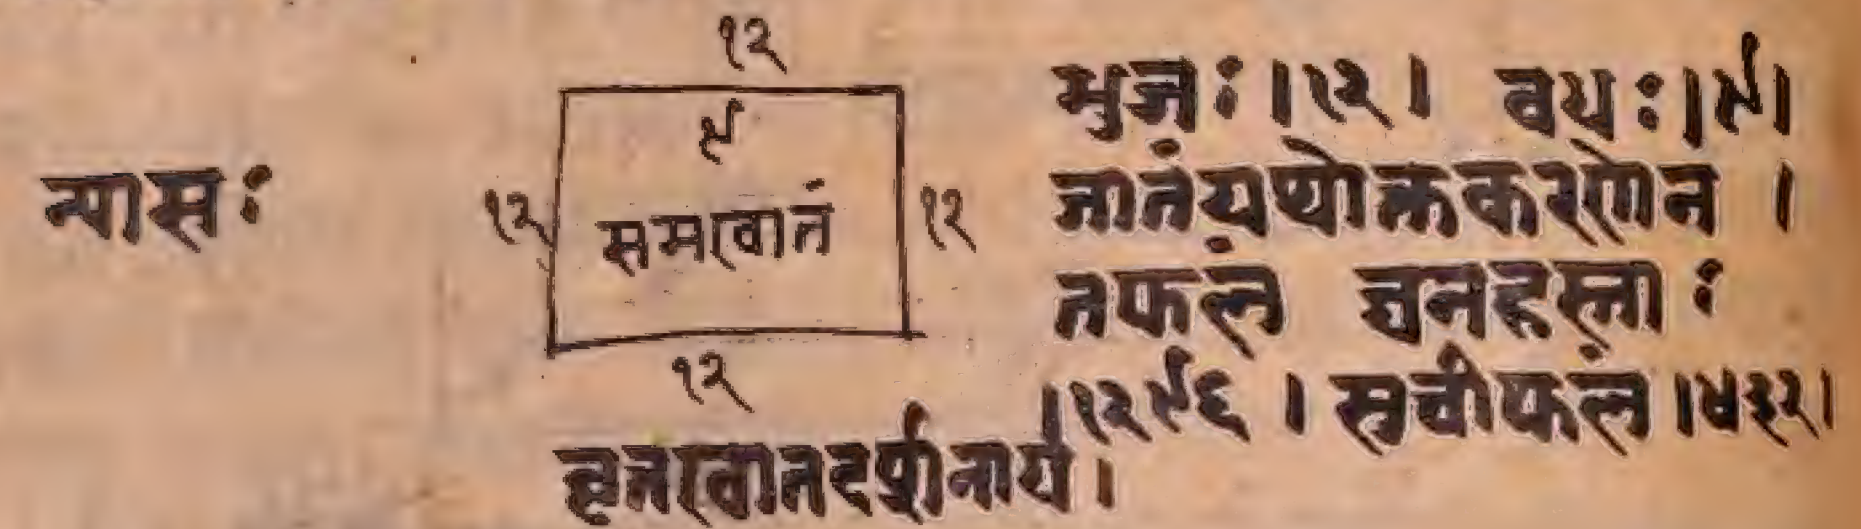 १२
९
न्यासः
१२
समखातं
१२
१२
भुजः।१२। वेधः।९।
जातंययथोक्तकरणेन ।
तफलं घनहस्ताः
।१२९६ । सूचीफलं ।४३२।
वृत्तखातदर्शनार्थ।